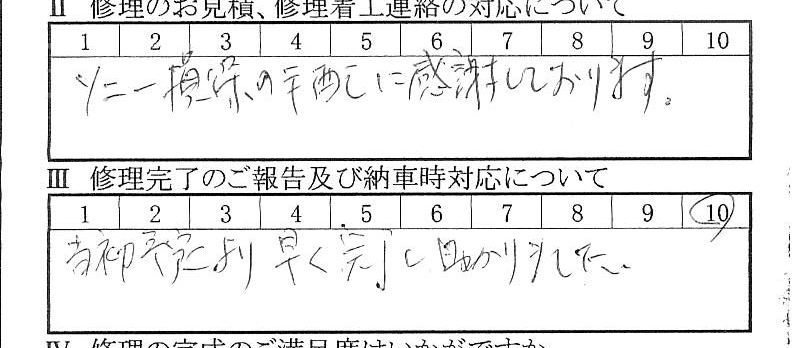 II 修理のお見積、修理着工連絡の対応について
1 2 3 4 5 6 7 8 9 10
ソニー損保の手配に感謝しております。
III 修理完了のご報告及び納車時対応について
1 2 3 4 5 6 7 8 9 10
当初予定より早く完了し助かりました。
IV 修理の完成のご満足度はいかがですか